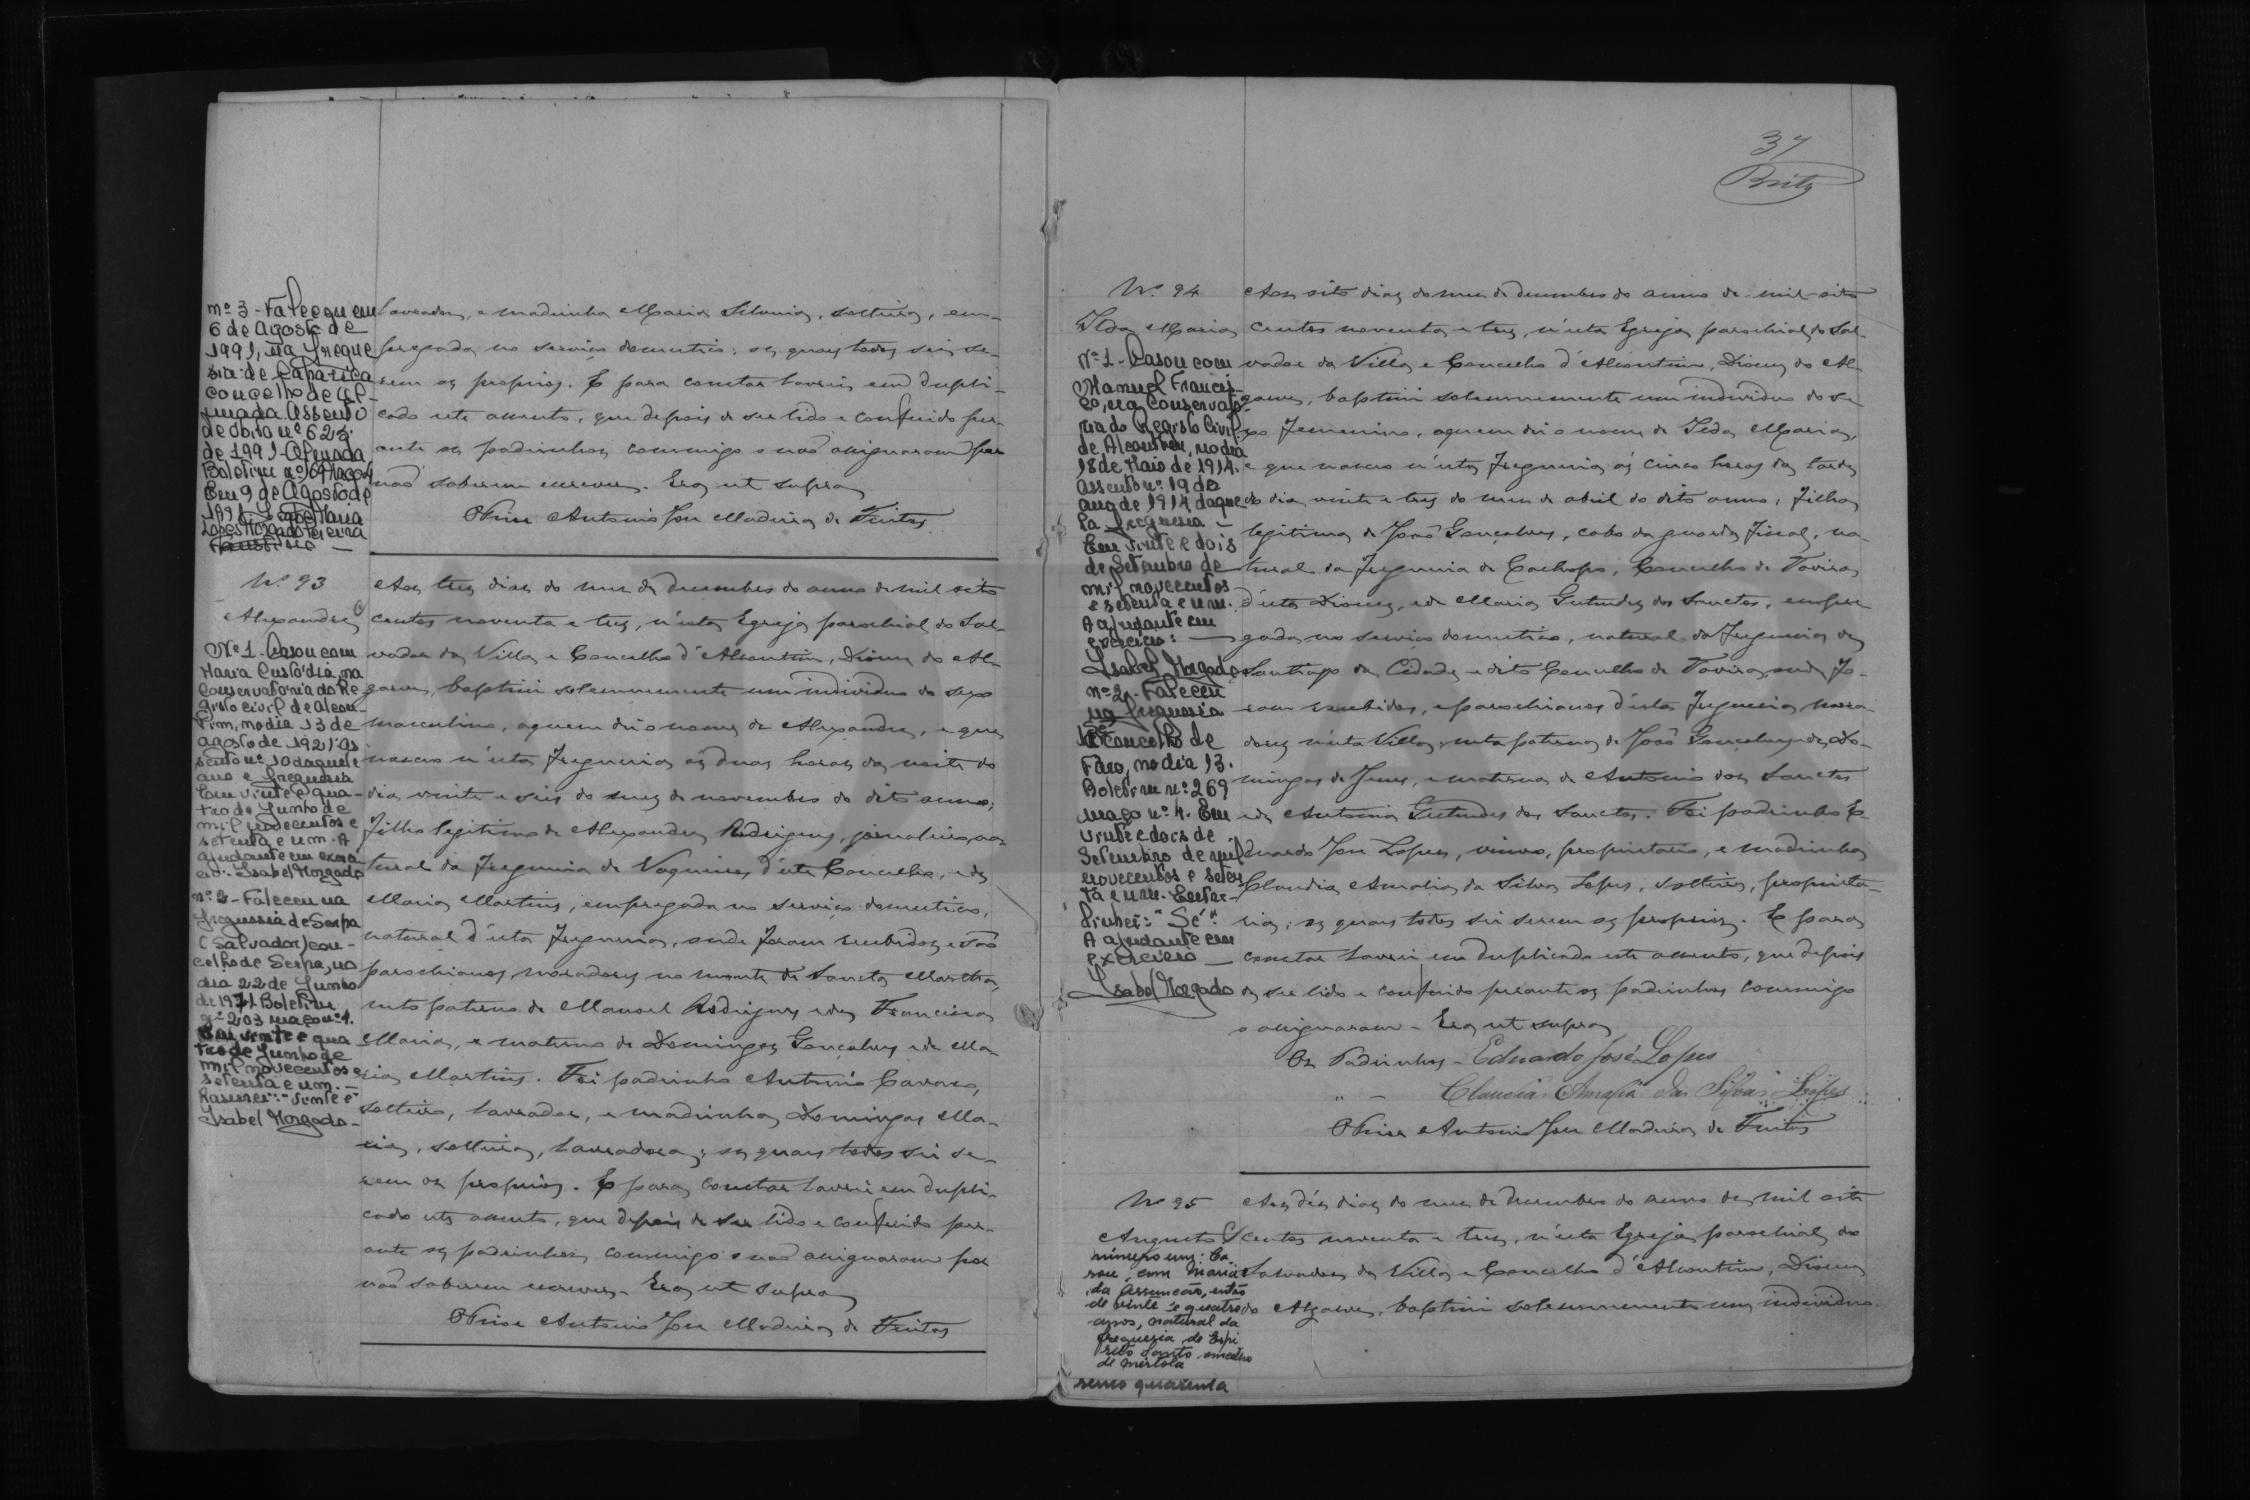 nº 3 - Faleceu em
6 de Agosto de
1991, na fregue
sia de Caparica
concelho de Al-
mada. Assento
de óbito nº 625
de 1991 - Almada
Boletim nº
Em 9 de Agosto de
1991
Lopes Morgado Pereira
lavrador, e madrinha Maria Silveria, solteira, em-
pregada no serviço domestico; os quaes todos sei se-
rem os proprios. E para constar lavrei em dupli-
cado este assento, que depois de ser lido e conferido per-
ante os padrinhos, commigo o não assignaram por
não saberem escrever. Era ut supra
O Prior Antonio José Madeira de Freitas
Nº 93
Alexandre
Nº 1 - Casou com
Maria Custódia, na
Conservatória do Re
gisto Civil de Alcou-
tim, no dia 13 de
agosto de 1921. as
sento nº 10 daquele
ano e freguesia
Em vinte e qua-
tro de Junho de
mil novecentos e
setenta e um. A
ajudante em exercí
cio: Isabel Morgado
nº 2 - Faleceu na
freguesia de Serpa
(Salvador) con-
celho de Serpa, no
dia 22 de Junho
de 1971. Boletim
nº 203 maço nº 1.
Em vinte e qua
tro de Junho de
mil novecentos e
setenta e um. -
Rasurei: "vinte e"
Isabel Morgado -
Aos tres dias do mez de dezembro do anno de mil oito
centos noventa e tres, n'esta Egreja parochial do Sal-
vador da Villa e Concelho d'Alcoutim, Diocese do Al-
garve, baptisei solemnemente um individuo do sexo
masculino, a quem dei o nome de Alexandre, e que
nasceu n'esta freguezia ás duas horas da noite do
dia vinte e seis do mez de novembro do dito anno;
filho legitimo de Alexandre Rodrigues, jornaleiro, na
tural da freguezia de Vaqueiros d'este Concelho, e de
Maria Martins, empregada no serviço domestico,
natural d'esta freguezia, onde foram recebidos, e são
parochianos, moradores no monte de Sancta Martha,
neto paterno de Manoel Rodrigues e de Francisca
Maria, e materno de Domingos Gonçalves e de Ma-
ria Martins. Foi padrinho Antonio Cavaco,
solteiro, lavrador, e madrinha Domingas Ma-
ria, solteira, lavradora; os quaes todos sei se-
rem os proprios. E para constar lavrei em dupli-
cado este assento, que depois de ser lido e conferido per-
ante os padrinhos, commigo o não assignaram por
não saberem escrever. Era ut supra
O Prior Antonio José Madeira de Freitas
37
Brito
Nº 94
Ilda Maria
Nº 1 - Casou com
Manuel Francis-
co, na Conservató-
ria do Registo Civil
de Alcoutim, no dia
18 de Maio de 1914.
Assento nº 19 do
ano de 1914 daque
la freguesia -
Em vinte e dois
de Setembro de
mil novecentos
e setenta e um.
A ajudante em
exercício: -
Isabel Morgado
nº 2 - Faleceu
na freguesia
concelho de
Faro, no dia 13.
Boletim nº 269
maço nº 4. Em
vinte e dois de
Setembro de mil
novecentos e seten
ta e um. Entre-
linhei: "Sé".
A ajudante em
exercício -
Isabel Morgado
Aos oito dias do mez de dezembro do anno de mil oito
centos noventa e tres, n'esta Egreja parochial do Sal
vador da Villa e Concelho d'Alcoutim, Diocese do Al-
garve, baptisei solemnemente um individuo do se
xo femenino, a quem dei o nome de Ilda Maria,
e que nasceu n'esta freguezia ás cinco horas da tarde
do dia vinte e tres do mez de abril do dito anno; filha
legitima de João Gonçalves, cabo da guarda fiscal, na-
tural da freguezia de Cachopo, Concelho de Tavira
d'esta Diocese, e de Maria Gertrudes dos Sanctos, empre
gada no serviço domestico, natural da freguezia de
Santhiago da Cidade e dito Concelho de Tavira, onde fo-
ram recebidos, e parochianos d'esta freguezia, mora-
dores n'esta Villa; neta paterna de João Gonçalves e de Do-
mingas de Jesus, e materna de Antonio dos Sanctos
e de Antonia Gertrudes dos Sanctos. Foi padrinho E-
duardo José Lopes, viuvo, proprietario, e madrinha
Claudia Amalia da Silva Lopes, solteira, proprieta-
ria; os quaes todos sei serem os proprios. E para
constar lavrei em duplicado este assento, que depois
de ser lido e conferido perante os padrinhos commigo
o assignaram - Era ut supra
Os Padrinhos - Eduardo José Lopes
" - Claudia Amalia da Silva Lopes
O Prior Antonio José Madeira de Freitas
Nº 95
Augusto
número um: Ca
sou, com Maria
da Assunção, então
de vinte e quatro
anos, natural da
freguezia de Espi
rito Santo concelho
de Mértola
Aos dez dias do mez de dezembro do anno de mil oito
centos noventa e tres, n'esta Egreja parochial do
Salvador da Villa e Concelho d'Alcoutim, Diocese
do Algarve, baptisei solemnemente um individuo